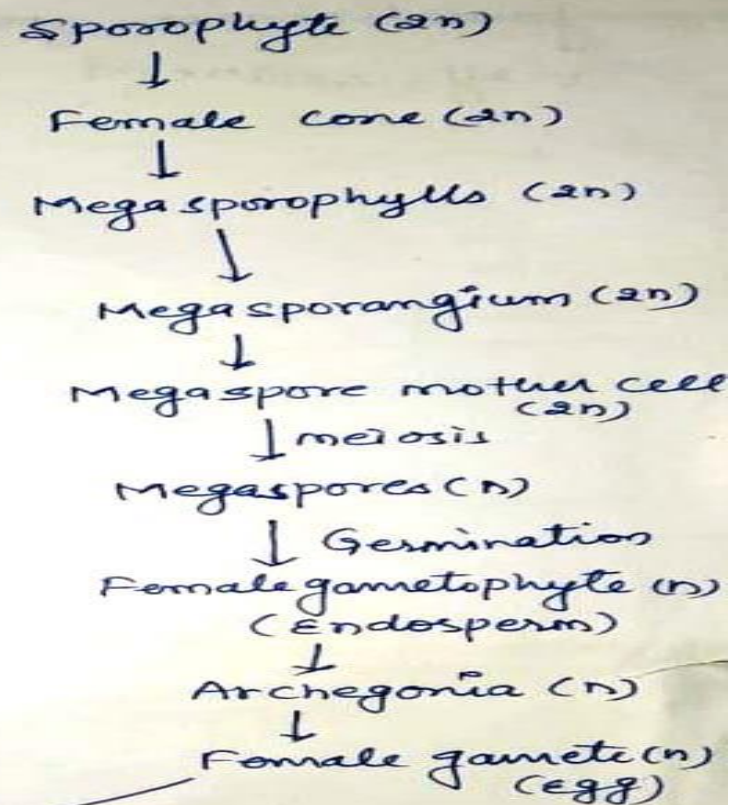 Sporophyte (2n)
↓
Female cone (2n)
↓
Megasporophylls (2n)
↓
Megasporangium (2n)
↓
Megaspore mother cell
(2n)
↓ meiosis
Megaspores (n)
↓ Germination
Female gametophyte (n)
(Endosperm)
↓
Archegonia (n)
↓
Female gamete (n)
(Egg)